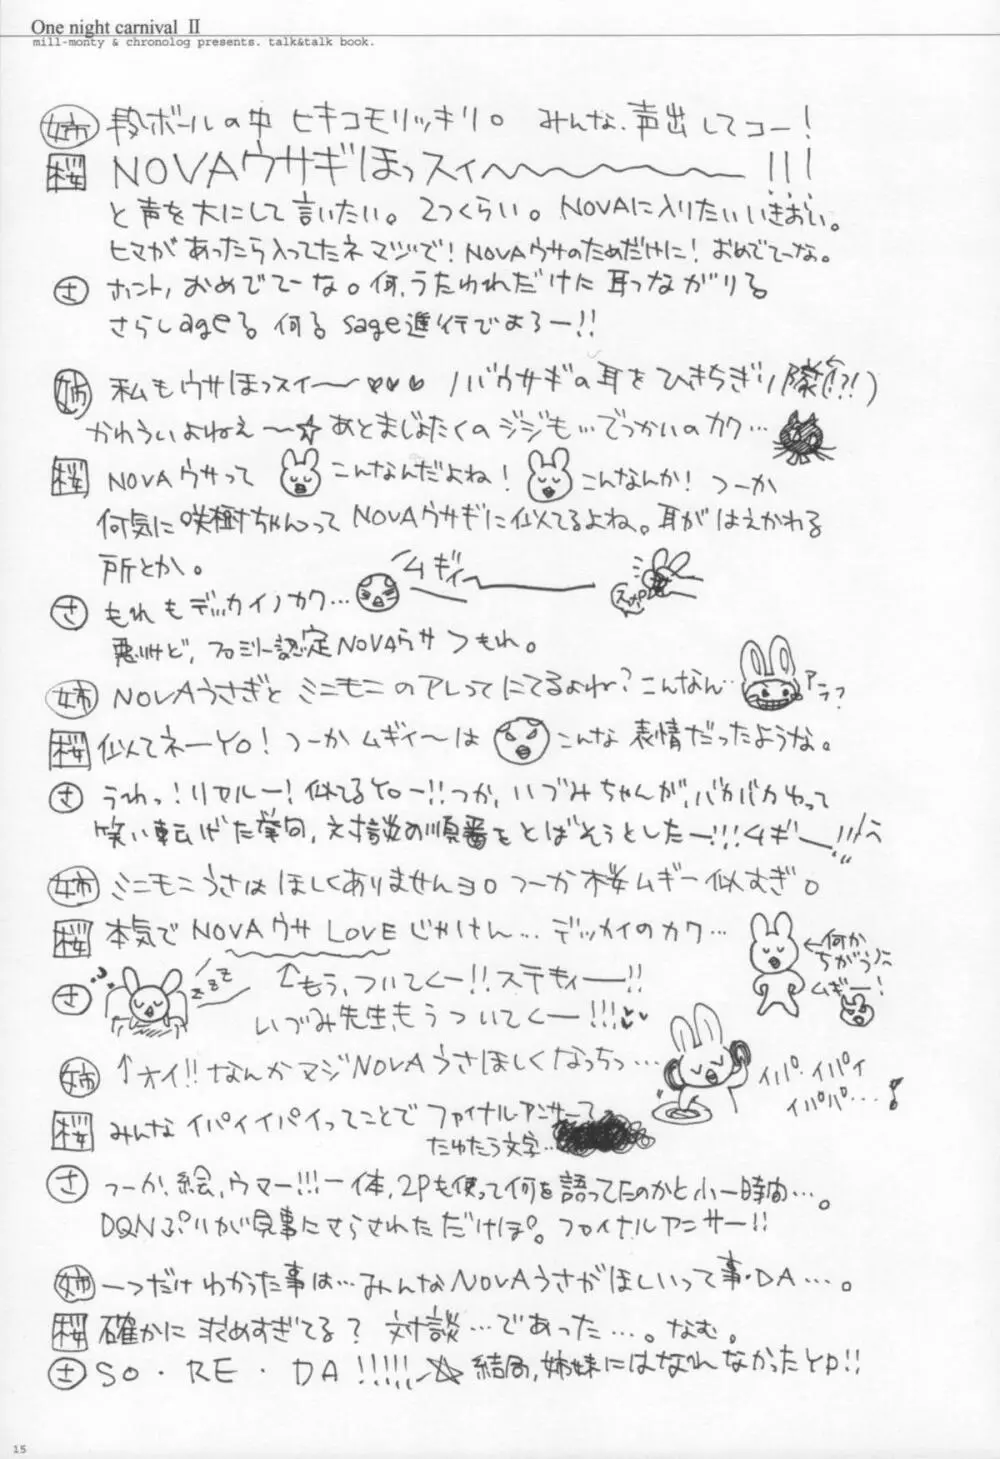 One night carnival Ⅱ
mill-monty & chronolog presents. talk&talk book.
姉 段ボールの中 ヒキコモリッキリ。 みんな、声出してコー！
桜 NOVAウサギほっスィ〜〜〜〜〜〜!!!
と声を大にして言いたい。2つくらい。NOVAに入りたいいきおい。
ヒマがあったら入ってたネマヅで！NOVAウサのためだけに！おめでてーな。
さ ホント、おめでてーな。何、うたわれだけに耳つながりる
さらしageる 何る sage進行でよろー!!
姉 私もウサほっスィ〜〜♥♥♥ ノバウサギの耳をひきちぎり隊(!?!)
かわういよねえ〜☆ あとまじょたくのジジも…でっかいのカク…
桜 NOVAウサって こんなんだよね！ こんなんか！ つーか
何気に咲樹ちゃんって NOVAウサギに似てるよね。耳がはえかわる
所とか。
ムギィー
さ もれもデッカイノカク…
悪いけど、ファミリー認定NOVAウサつもれ。
姉 NOVAうさぎと ミニモニのアレってにてるよね？こんなん…
アラ？
桜 似てネーYO！ つーか ムギィ〜は こんな 表情だったような。
さ うわっ！リヤルー！似てるYOー!!つか、いづみちゃんが、バカバカゆって
笑い転げた挙句、対談の順番をとばそうとしたー!!!ムギー!!!
姉 ミニモニうさはほしくありませんヨ。つーか桜ムギー似すぎ。
桜 本気でNOVAウサ LOVE じゃけん… デッカイのカク…
←何か
ちがう!!
ムギー！
さ zzz ↑もう、ついてくー!!ステキィー!!
いづみ先生、もうついてくー!!!♥♥
姉 ↑オイ!!なんかマジNOVAうさほしくなっちっ…
イパ・イパイ
イパパ…♪
桜 みんなイパイイパイってことでファイナルアンサーて、
たゆたう文字…
さ つーか、絵、ウマー!!!一体、2Pも使って何を語ってたのかと小一時間…。
DQNぷりが見事にさらされただけぽ。ファイナルアンサー!!
姉 一つだけわかった事は…みんなNOVAうさがほしいって事・DA…。
桜 確かに求めすぎてる？ 対談…であった…。なむ。
さ SO・RE・DA!!!!!☆ 結局、姉妹にはなれんなかったYP!!
15